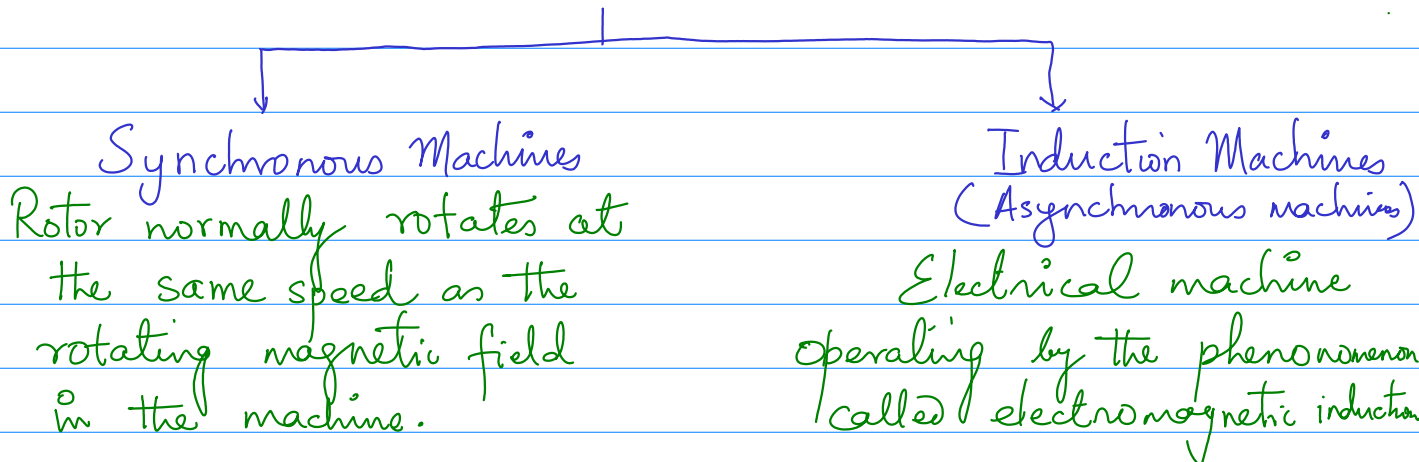 Synchronous Machines
Rotor normally rotates at
the same speed as the
rotating magnetic field
in the machine.
Induction Machines
(Asynchronous machines)
Electrical machine
operating by the phenonomenon
called electromagnetic induction